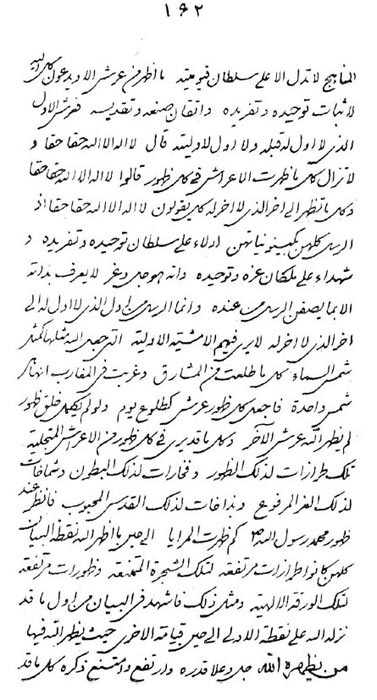 ۱۶۲
المناهج لا تدل الا علی سلطان قیومیته ما اظهر من عرش الا و یدعون کل الی الله
لاثبات توحیده و تفریده و اتقان صنعه و تقدیسه فعرش الاول
الذی لا اول له قبله ولا اول لاولیته قال لا اله الا الله حقا حقا و
لا تزال کل ما ظهرت الاعراش فی کل ظهور قالوا لا اله الا الله حقا حقا
و کل ما تنظر الی اخر الذی لا اخر له کل یقولون لا اله الا الله حقا حقا اذ
الرسل کلهن بکینونیاتهن ادلاء علی سلطان توحیده و تفریده و
شهداء علی ملکان عزه و توحیده و انه هو جل و عز لا یعرف بذاته
الا بما یصفن الرسل من عنده و انما الرسل من اول الذی لا اول له الی
اخر الذی لا اخر له لا یری فیهم الا مشیته الاولیة التی جعل الله مثلها کمثل
شمس السماء کل ما طلعت من المشارق و غربت فی المغارب انها هی
شمس واحدة فاجعل کل ظهور عرش کطلوع یوم و لو لم یکمل خلق ظهور
لم یظهر الله عرش الآخر و کل ما قد یری فی کل ظهور من الاعراش المتجلیة
تلک طرازات لذلک الظهور و لذلک البطون و
لذلک العز المرفوع و بذاخات لذلک القدس المحبوب فانظر عند
ظهور محمد رسول الله ص کم ظهرت المرایا الی حین ما اظهر الله نقطة البیان
کلهن کانوا طرازات مرتفعه لتلک الشجرة الممتنعه و ظهورات مرتفعه
لتلک الورقة الالهیة و مثل ذلک فاشهد فی البیان من اول ما قد
نزله الله علی نقطة الاولی الی حین قیامة الاخری حیث یظهر الله فیها
من یظهره الله جل و علا قدره و ارتفع و امتنع ذکره کل ما قد